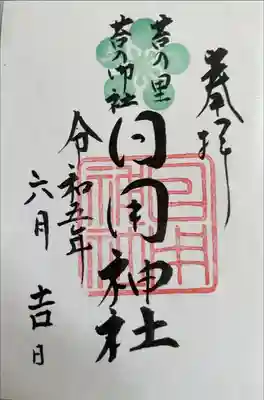 奉拝
苔の里
苔の御社
日用神社
令和五年
六月吉日